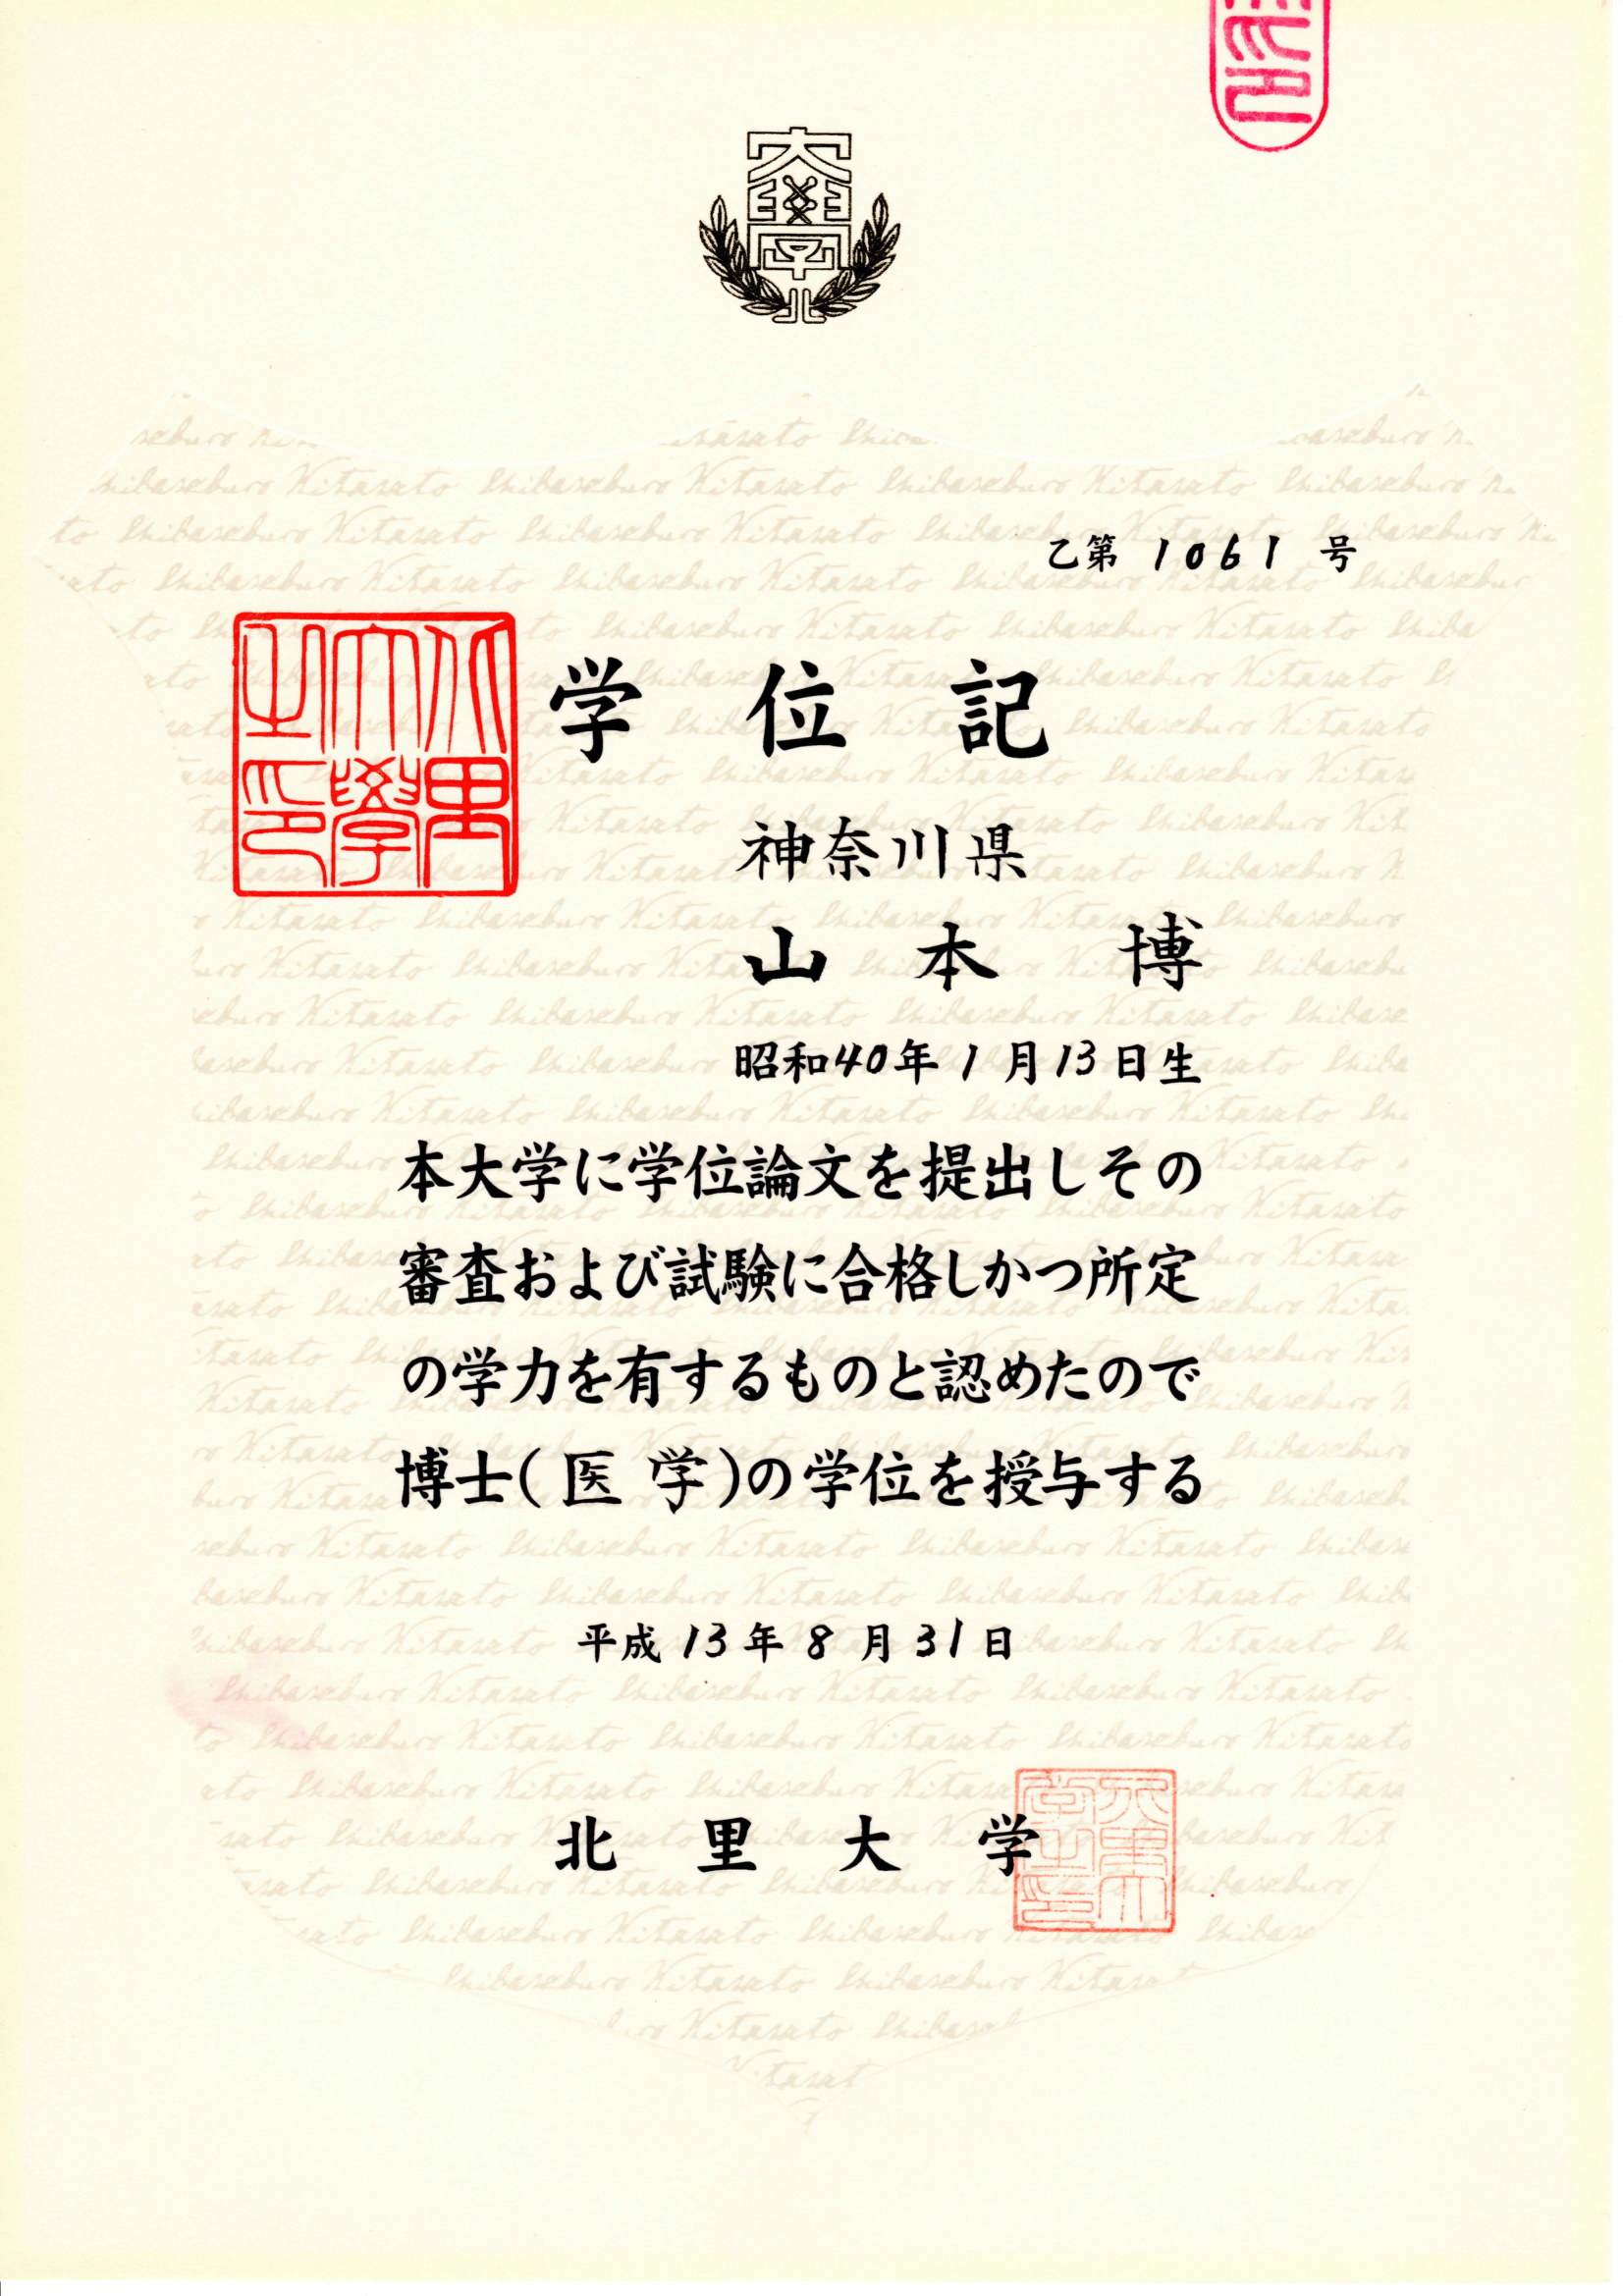 乙第 1061 号
学位記
神奈川県
山本 博
昭和40年1月13日生
本大学に学位論文を提出しその
審査および試験に合格しかつ所定
の学力を有するものと認めたので
博士(医学)の学位を授与する
平成13年8月31日
北里大学